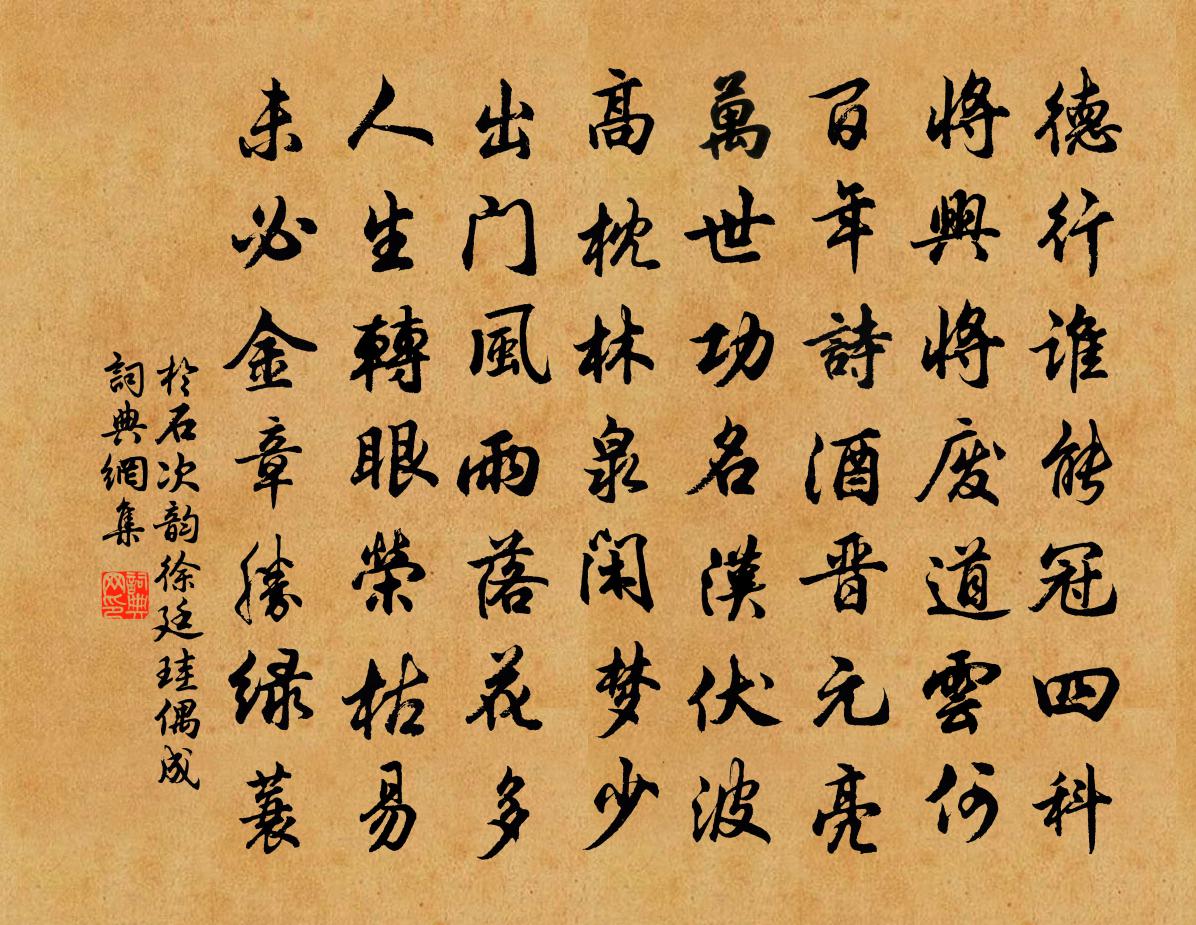 德行谁能冠四科
将興将废道雲何
百年詩酒晋元亮
萬世功名漢伏波
高枕林泉闲梦少
出门風雨落花多
人生轉眼榮枯易
未必金章勝绿蓑
於石次韵徐廷珪偶成
詞典網集
詞典网印